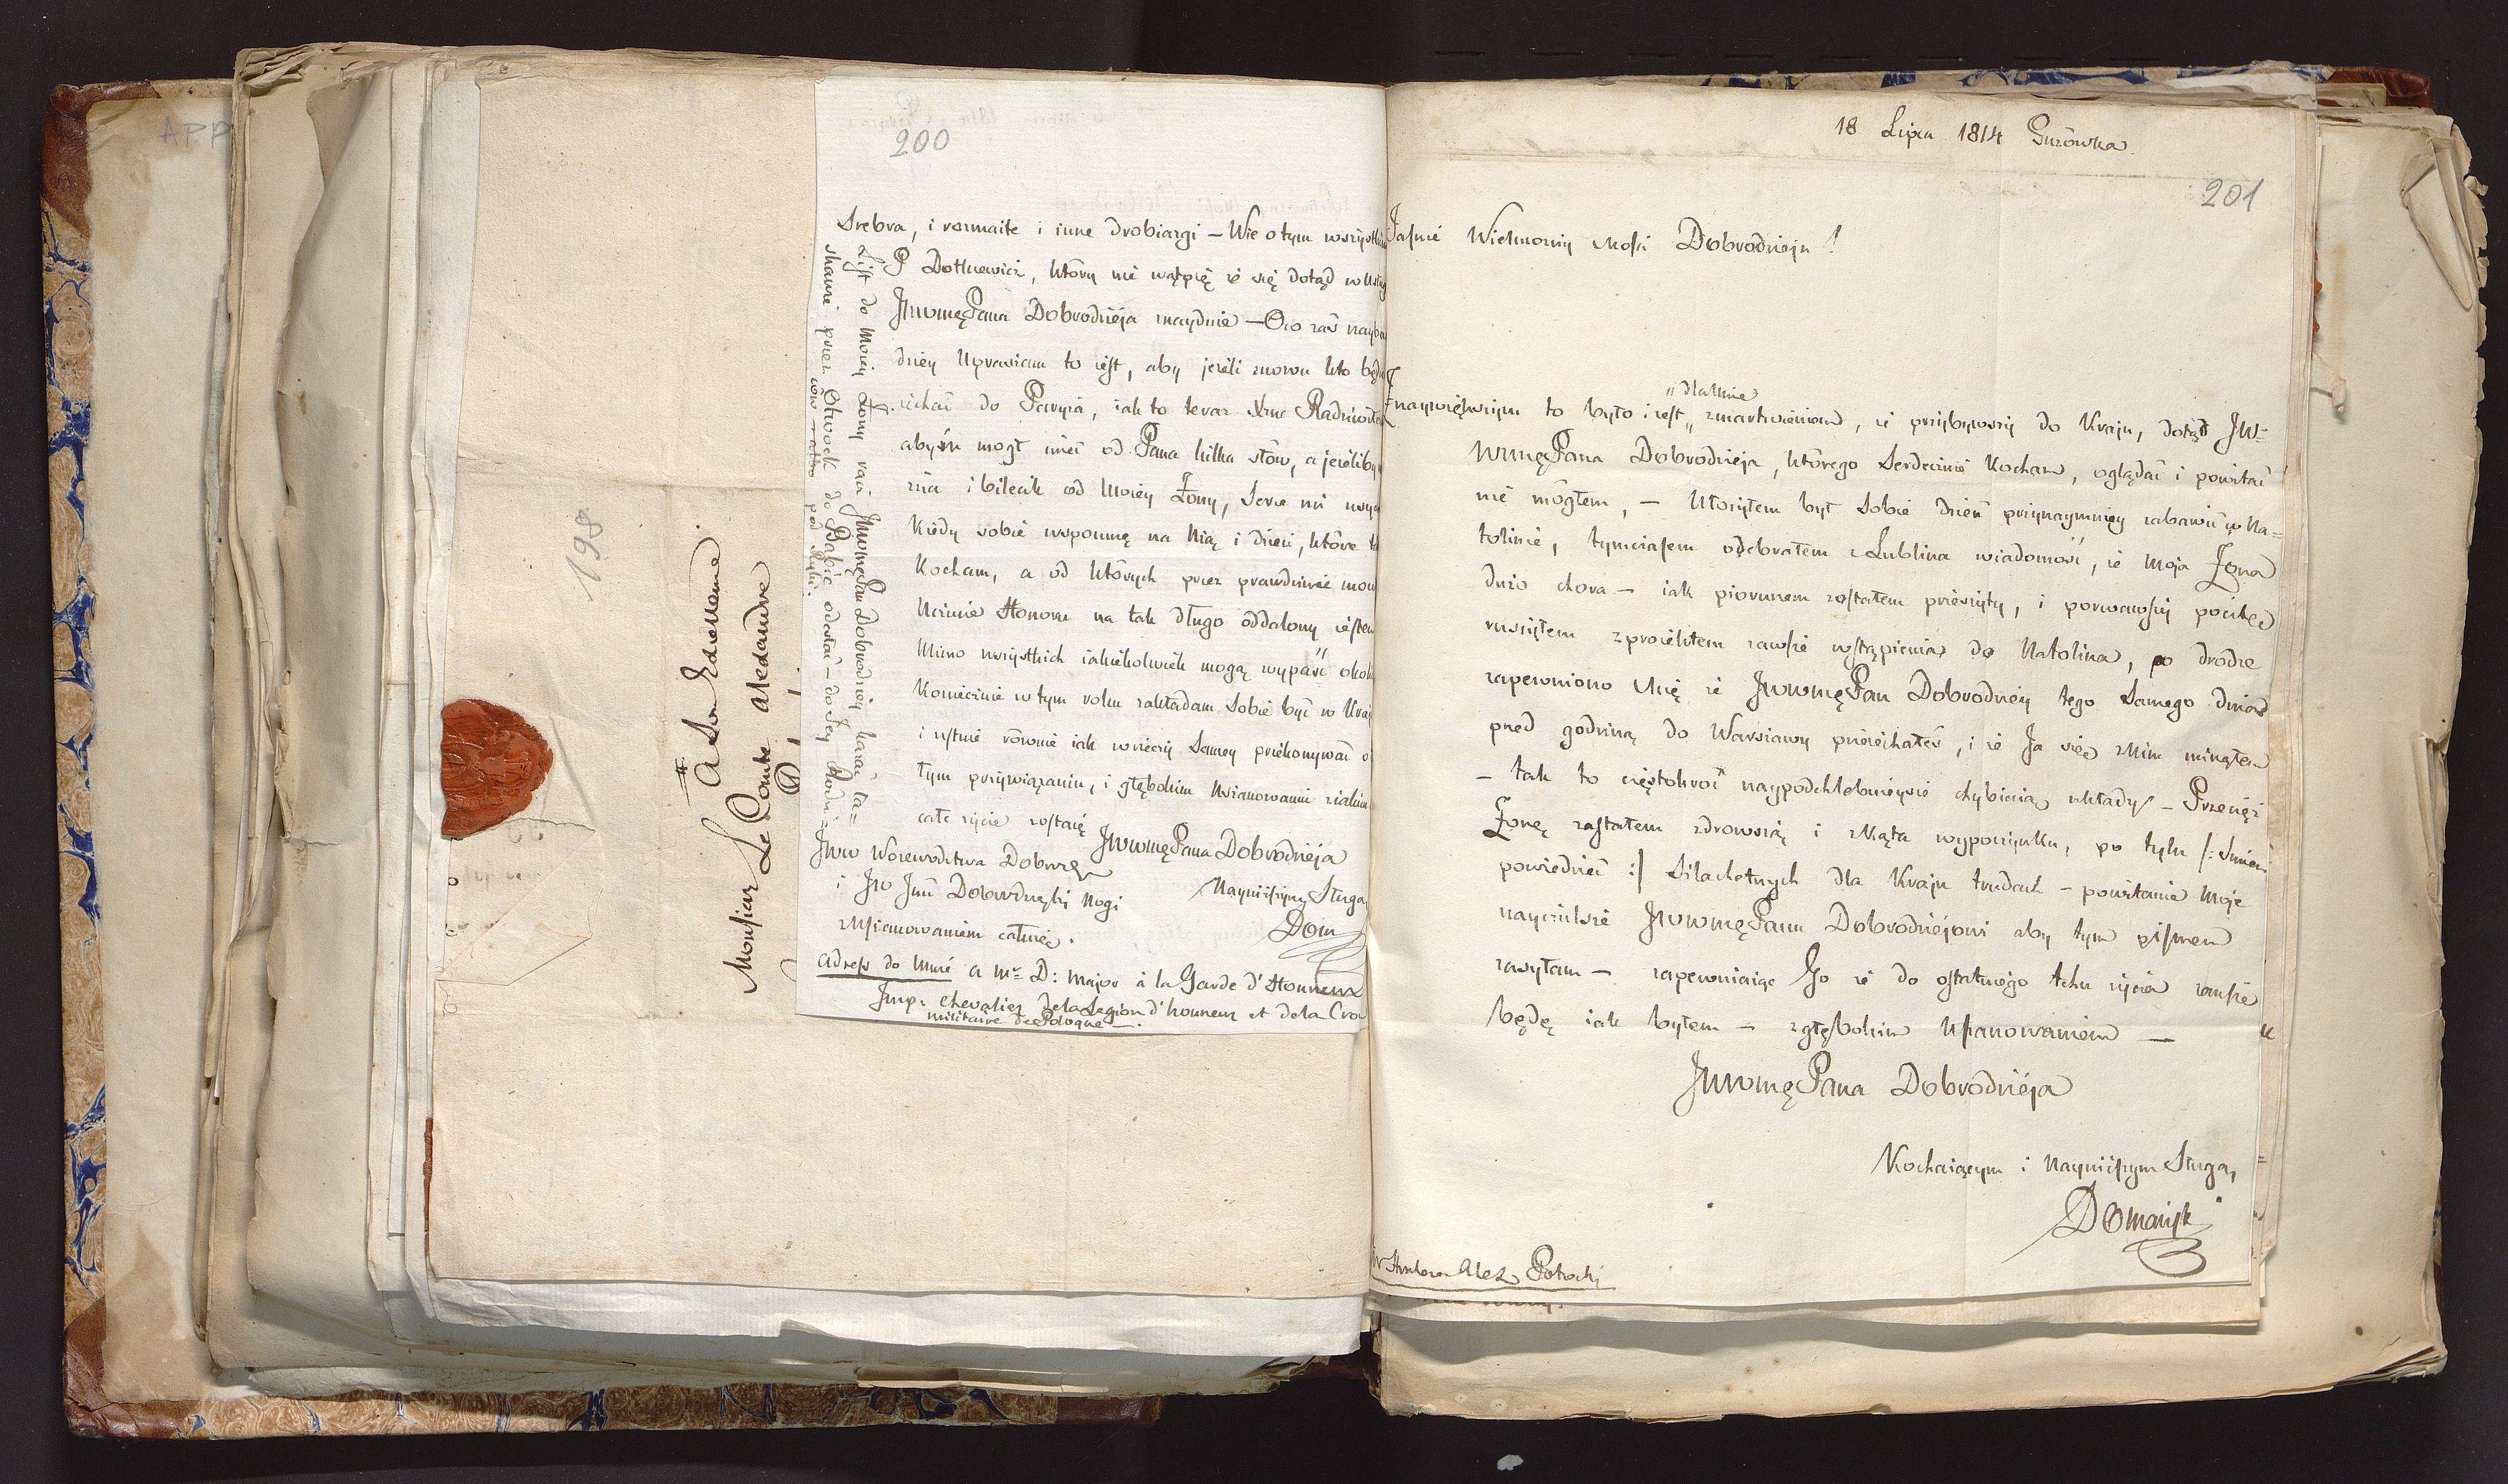 198
A Son Excellence
Monsieur Le Comte Alexandre
200
Srebra, i rozmaite i inne drobiazgi – Wie o tym wszystkim
P Dotkiewicz, który nie wątpię że się dotąd w Usług
JWWMęPana Dobrodzieja znayduie – Oco zaś nayba
dziey Upraszam to iest, aby jeżeli znowu kto będzie
iechać do Paryża, iak to teraz Xżna Radziwiłł
abyśm mogł mieć od Pana kilka słów, a jeżeliby
żna i bilecik od Moiey Żony, Serce mi
Kiedy sobie wspomnę na Nią i dzieci, które
Kocham, a od których przez prawdziwie
Uczucie Honoru na tak długo oddalony iestem
Mimo wszystkich iakichkolwiek mogą wypaść okol
Koniecznie w tym roku zakładam Sobie być w Kraj
i ustnie równie iak w rzeczy Samey przekonywać o
tym przywiązaniu, i głębokim Uszanowaniu z iakim
całe życie zostaię
JWWMęPana Dobrodzieja
Nayniższym Sługą
Dom
JWW Woiewodztwa Dobrodz
i JW Jmć Dobrodzieyki Nogi
z Uszanowaniem całuię.
Adress do Mnie a Mr D: Major à la Garde d'Honneur
Imp: Chevalier de la Legion d'honneur et de la Croi
militaire de Pologne –.
List do Moiey Żony racz JWWMęPan Dobrodziey kazać ła=
skawie przez Otwock do Babic odesłać – do Jey Rodzi=
ców – albo pod Ryki.
18 Lipca 1814 Gurówka
201
Jaśnie Wielmożny Mości Dobrodzieju!
„dla Mnie
naywiększym to było i iest „ zmartwieniem, że przybywszy do Kraju, dotąd JW=
WMęPana Dobrodzieja, którego Serdecznie Kocham, oglądać i powitać
nie mogłem, – Ułożyłem był Sobie dzień przynaymniey zabawić w Na=
tolinie, tymczasem odebrałem z Lublina wiadomość, że Moja Żona
dużo chora – iak piorunem zostałem przeszyty, i porwawszy pocztę
ruszyłem z proiektem zawsze wstąpienia do Natolina, po drodze
zapewniono Mię że JWWMęPan Dobrodziey tego Samego dnia
przed godziną do Warszawy przeiechałeś, i że Ja się z Nim minąłem
– tak to częstokroć naypodchlebnieysze chybiaią układy – Przecież
Żonę zastałem zdrowszą i z Kąta wypoczynku, po tylu /: Śmiem
powiedzieć :/ Szlachetnych dla Kraju trudach – powitanie Moje
nayczulsze JWWMęPanu Dobrodziejowi aby tym pismem
zasyłam – zapewniaiąc Go że do ostatniego tchu życia zawsze
będę iak byłem – z głębokim Uszanowaniem –
JWWMęPana Dobrodzieja
Kochaiącym i Nayniższym Sługą,
Domański
JW Hrabia Alex Potocki